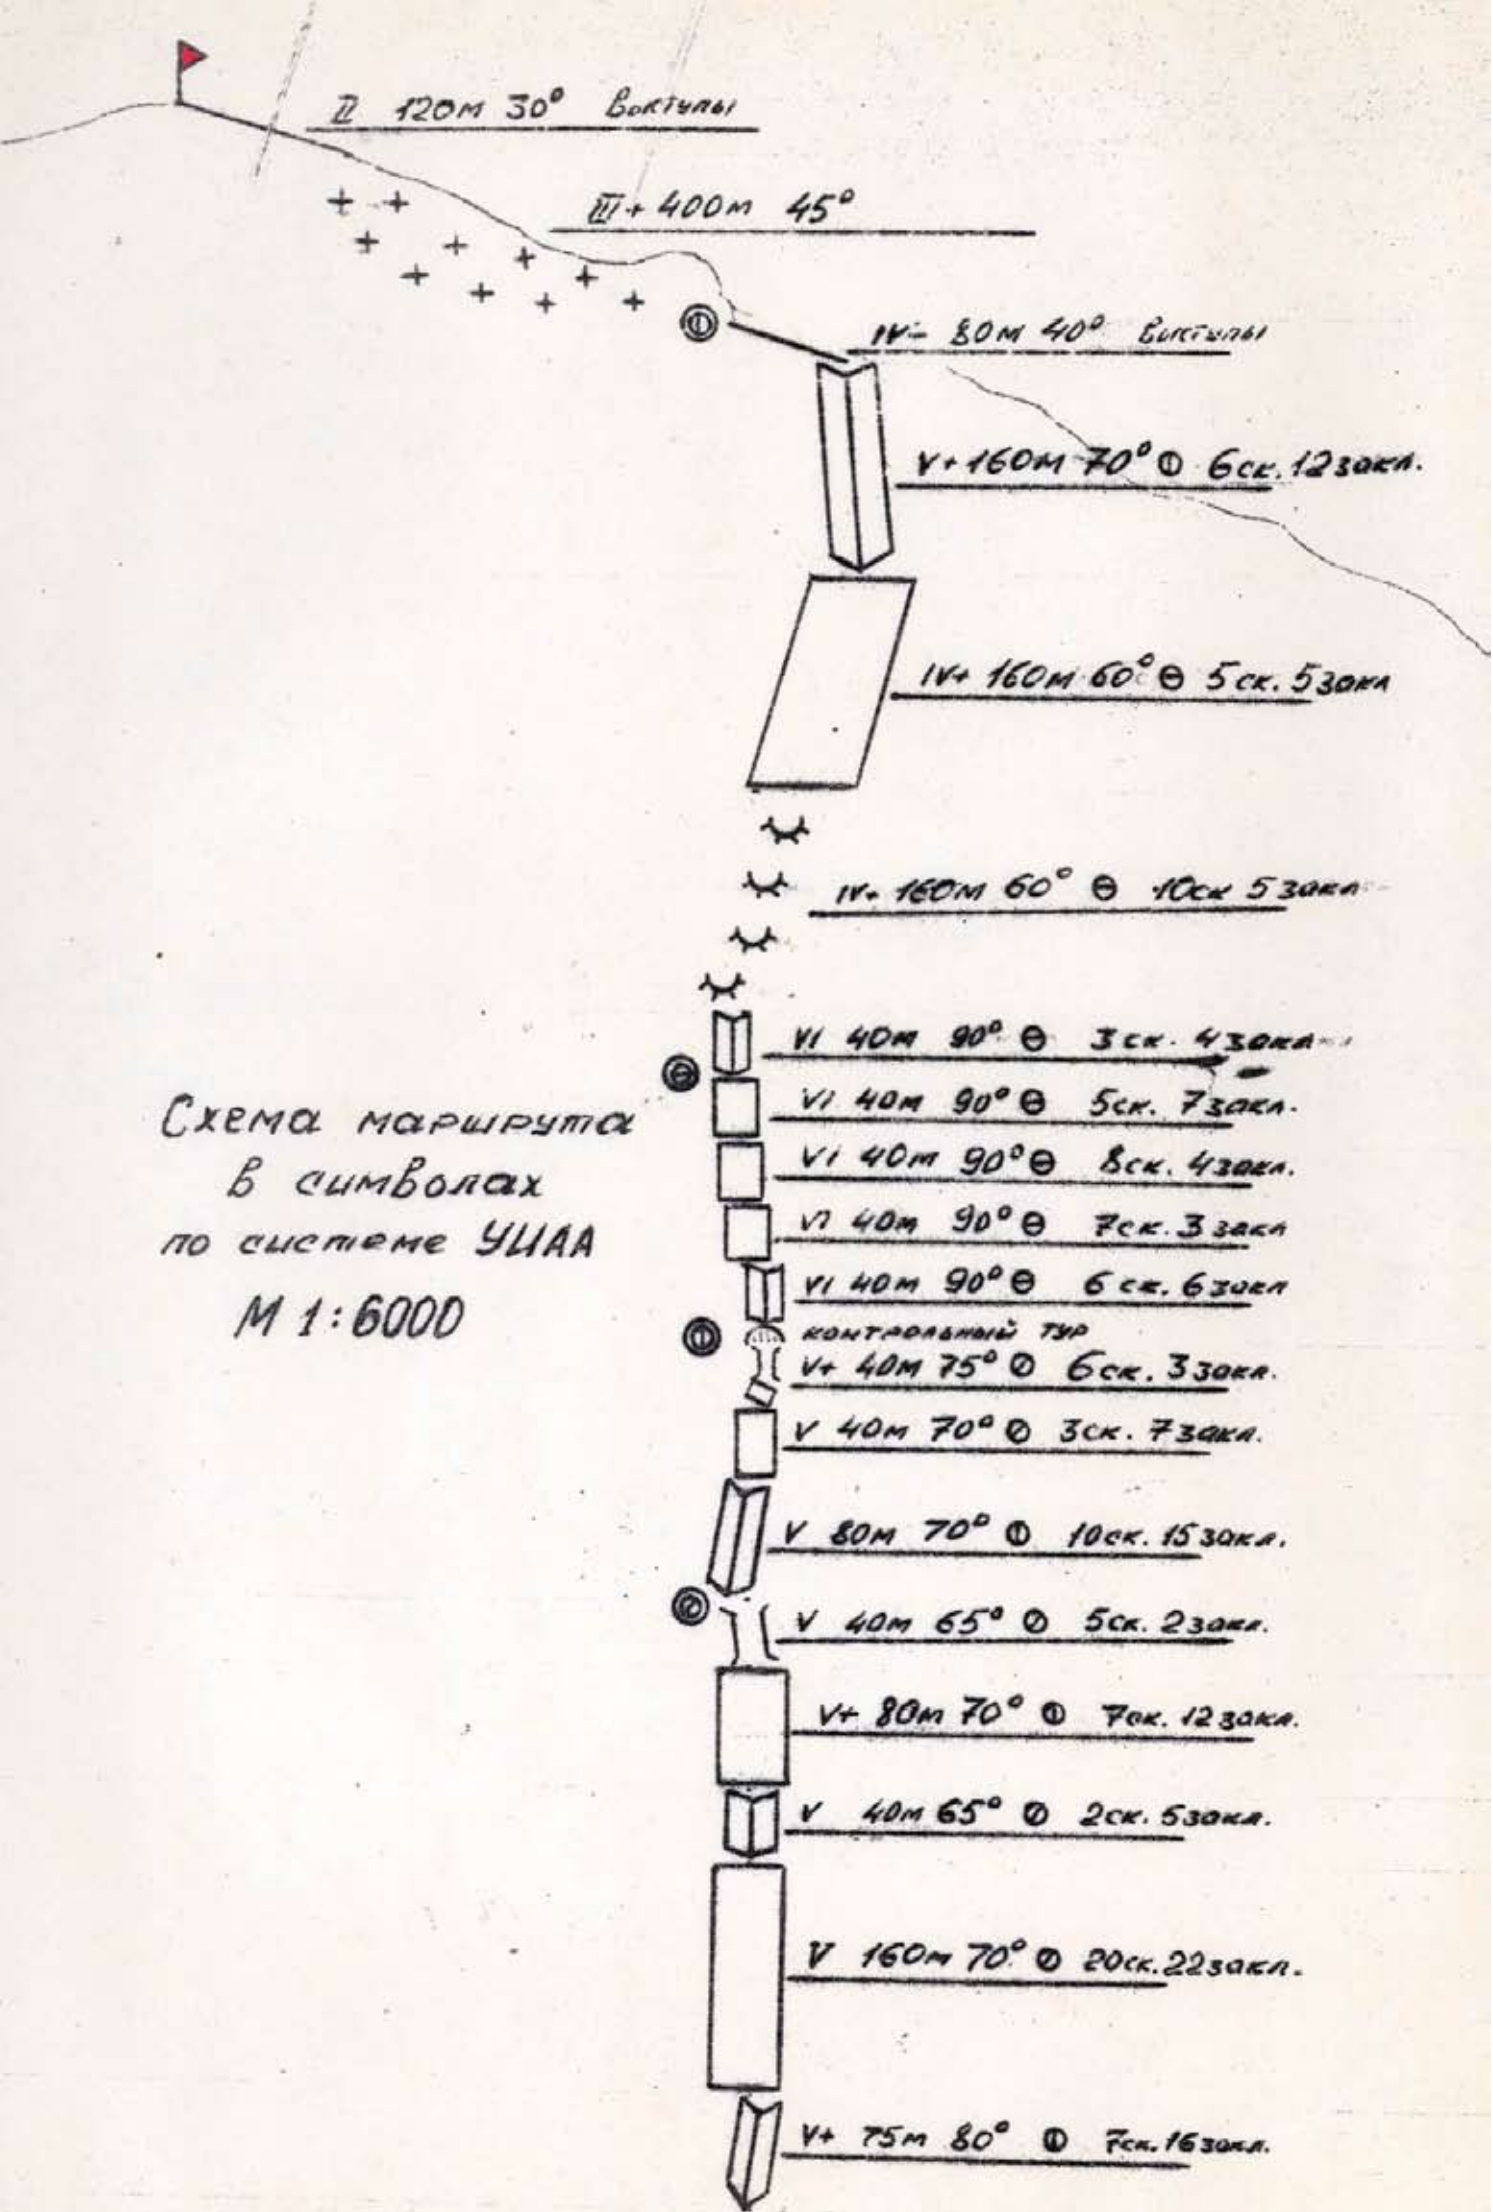 II 120м 30° Воктупы
III+ 400м 45°
IV- 80м 40° Виктупы
V+ 160м 70° 6ск. 12закл.
IV+ 160м 60° ⊖ 5ск. 5закл
IV+ 160м 60° ⊖ 10ск 5закл
VI 40м 90° ⊖ 3ск. 4закл
VI 40м 90° ⊖ 5ск. 7закл.
VI 40м 90° ⊖ 8ск. 4закл.
VI 40м 90° ⊖ 7ск. 3закл
VI 40м 90° ⊖ 6ск. 6закл
контрольный тур
V+ 40м 75° ⊘ 6ск. 3закл.
V 40м 70° ⊘ 3ск. 7закл.
V 80м 70° 10ск. 15закл.
V 40м 65° ⊘ 5ск. 2закл.
V+ 80м 70° 7ск. 12закл.
V 40м 65° ⊘ 2ск. 5закл.
V 160м 70° ⊘ 20ск. 22закл.
V+ 75м 80° 7ск. 16закл.
Схема маршрута
в символах
по системе УИАА
М 1:6000